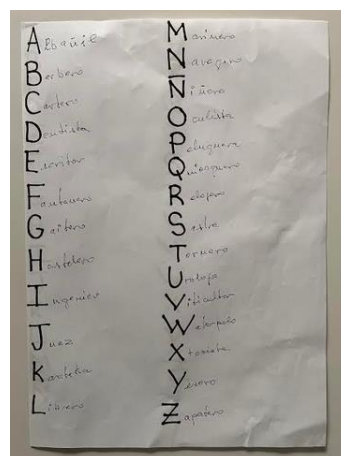 Albañil
Barbero
Cartero
Dentista
Escritor
Fontanero
Gaitero
Hostelero
Ingeniero
Juez
Librero
Marinero
Navegero
Niñera
Oculista
Peluquera
Quiosquero
Relojero
Sastre
Tornero
Urologo
Viticultor
Yesero
Zapatero